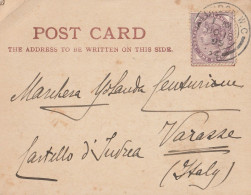 POST CARD
THE ADDRESS TO BE WRITTEN ON THIS SIDE.
Marchesa Yolanda Centurione
Varazze
Castello d'Andrea
(Italy)